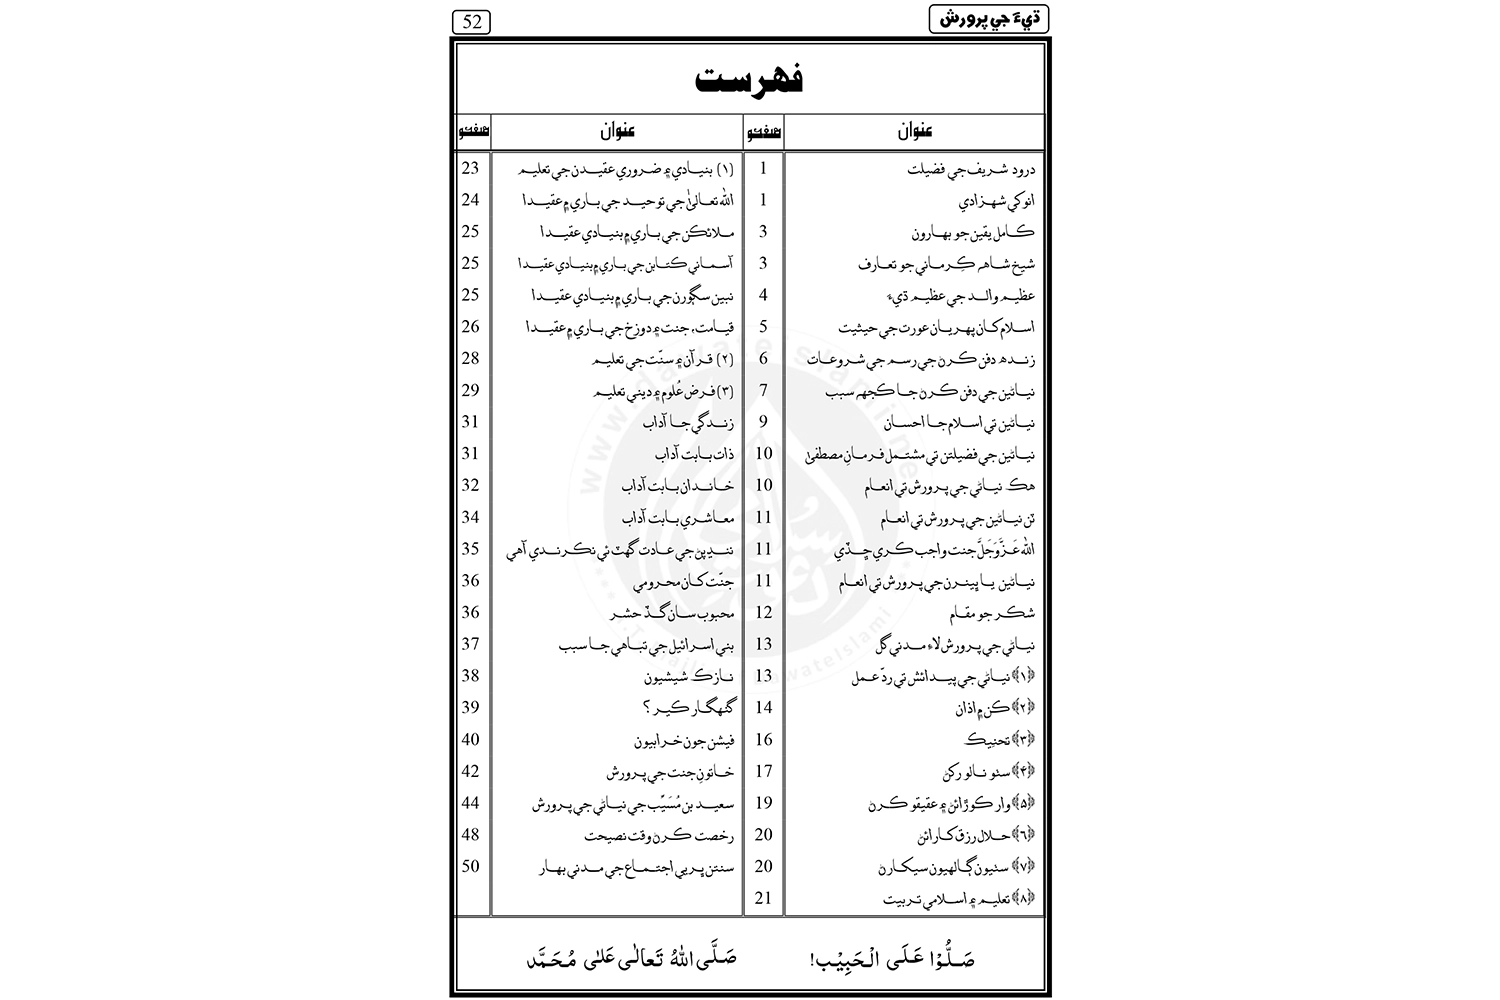 ڌيءَ جي پرورش
52
فهرست
عنوان صفحو عنوان صفحو
درود شريف جي فضيلت 1 (۱) بنيادي ۽ ضروري عقيدن جي تعليم 23
انوکي شهزادي 1 الله تعاليٰ جي توحيد جي باري ۾ عقيدا 24
ڪامل يقين جو بهارون 3 ملائڪن جي باري ۾ بنيادي عقيدا 25
شيخ شاهه ڪِرماني جو تعارف 3 آسماني ڪتابن جي باري ۾ بنيادي عقيدا 25
عظيم والد جي عظيم ڌيءَ 4 نبين سڳورن جي باري ۾ بنيادي عقيدا 25
اسلام کان پهريان عورت جي حيثيت 5 قيامت، جنت ۽ دوزخ جي باري ۾ عقيدا 26
زنده دفن ڪرڻ جي رسم جي شروعات 6 (۲) قرآن ۽ سنّت جي تعليم 28
نياڻين جي دفن ڪرڻ جا ڪجهه سبب 7 (۳) فرض عُلوم ۽ ديني تعليم 29
نياڻين تي اسلام جا احسان 9 زندگي جا آداب 31
نياڻين جي فضيلتن تي مشتمل فرمانِ مصطفيٰ 10 ذات بابت آداب 31
هڪ نياڻي جي پرورش تي انعام 10 خاندان بابت آداب 32
ٽن نياڻين جي پرورش تي انعام 11 معاشري بابت آداب 34
الله عَزَّوَجَلَّ جنت واجب ڪري ڇڏي 11 ننڍپڻ جي عادت گهٽ ئي نڪرندي آهي 35
نياڻين يا ڀينرن جي پرورش تي انعام 11 جنّت کان محرومي 36
شڪر جو مقام 12 محبوب سان گڏ حشر 36
نياڻي جي پرورش لاءِ مدني گل 13 بني اسرائيل جي تباهي جا سبب 37
﴿۱﴾ نياڻي جي پيدائش تي ردّ عمل 13 نازڪ شيشيون 38
﴿۲﴾ ڪن ۾ اذان 14 گنهگار ڪير ؟ 39
﴿۳﴾ تحنيڪ 16 فيشن جون خرابيون 40
﴿۴﴾ سٺو نالو رکڻ 17 خاتونِ جنت جي پرورش 42
﴿۵﴾ وار ڪوڙائڻ ۽ عقيقو ڪرڻ 19 سعيد بن مُسَيَّب جي نياڻي جي پرورش 44
﴿٦﴾ حلال رزق کارائڻ 20 رخصت ڪرڻ وقت نصيحت 48
﴿۷﴾ سٺيون ڳالهيون سيکارڻ 20 سنتن ڀريي اجتماع جي مدني بهار 50
﴿۸﴾ تعليم ۽ اسلامي تربيت 21
صَلُّوْا عَلَى الْحَبِيْب! صَلَّى اللّٰهُ تَعَالٰى عَلٰى مُحَمَّد